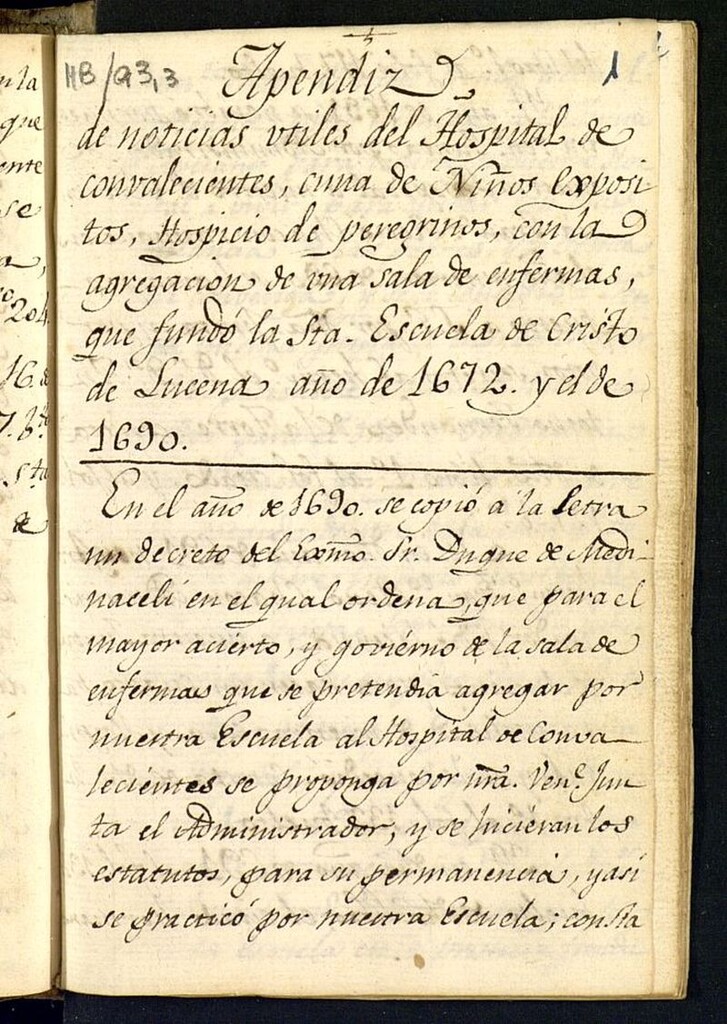 HB/93,3
1
Apendiz
de noticias vtiles del Hospital de
convalecientes, cuna de Niños Exposi
tos, Hospicio de peregrinos, con la
agregacion de vna sala de enfermas,
que fundó la Sta. Escuela de Cristo
de Lucena año de 1672. y el de
1690.
En el año de 1690. se copió à la Letra
un decreto del Exmo. Sr. Duque de Medi-
naceli en el qual ordena, que para el
mayor acierto, y govierno de la sala de
enfermas que se pretendia agregar por
nuestra Escuela al Hospital de Conva
lecientes se proponga por nrã. Vene. Jun
ta el Administrador, y se hicieran los
estatutos, para su permanencia, y asi
se practicó por nuestra Escuela; consta
n la
que
ente
se
a,
204
16. de
7. bre
sta
de